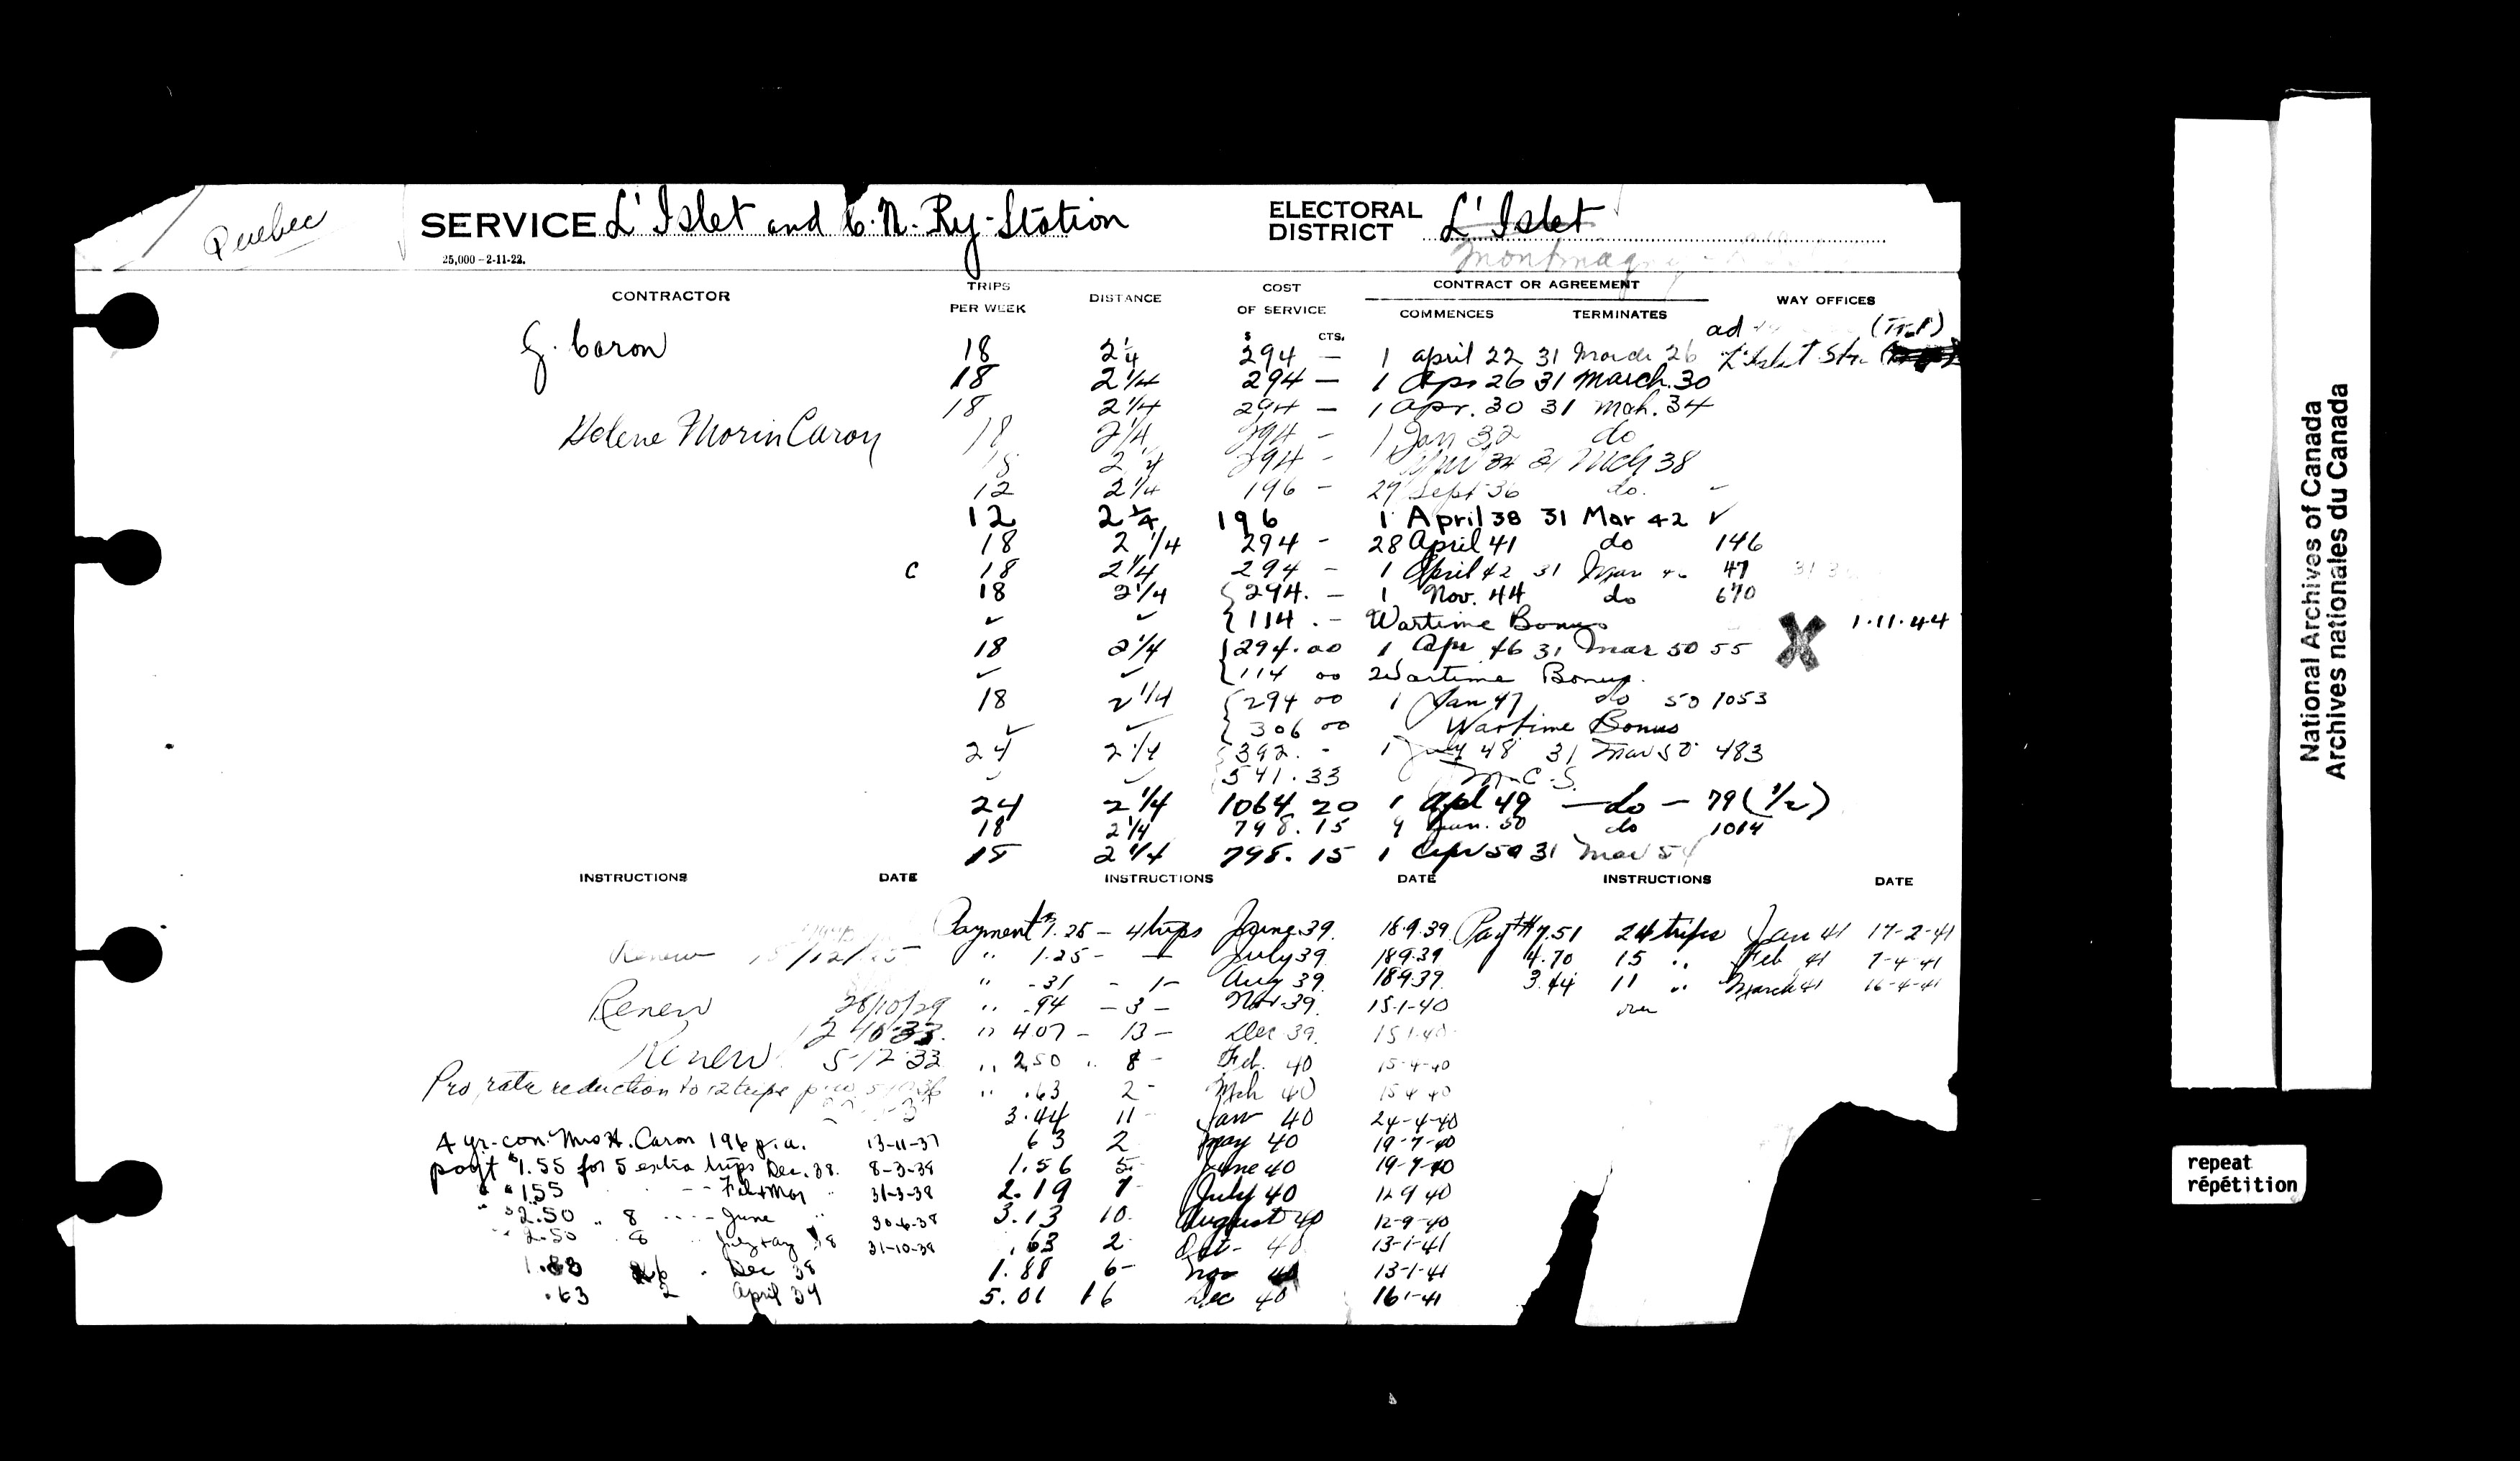 Quebec
SERVICE L'Islet and C.N. Ry. Station
ELECTORAL DISTRICT L'Islet
Montmagny
25,000-2-11-22.
CONTRACTOR TRIPS PER WEEK DISTANCE COST OF SERVICE CONTRACT OR AGREEMENT COMMENCES TERMINATES WAY OFFICES
$ CTS. ad (Trf)
G. Caron 18 2 1/4 294 — 1 April 22 31 March 26 L'Islet Stn
18 2 1/4 294 — 1 Apr 26 31 March. 30
18 2 1/4 294 — 1 Apr. 30 31 Mch. 34
Helene Morin Caron 18 2 1/4 294 - 1 Jan 32 do
18 2 1/4 294 - 34 31 Mch 38
12 2 1/4 196 - 27 Sept 36 do. -
12 2 1/4 196 1 April 38 31 Mar 42 ✓
18 2 1/4 294 - 28 April 41 do 146
c 18 2 1/4 294 - 1 April 42 31 Mar 47
18 2 1/4 294. — 1 Nov. 44 do 670
✓ ✓ 114 . - Wartime Bonus X 1.11.44
18 2 1/4 294.00 1 Apr 46 31 Mar 50 55
✓ ✓ 114 00 Wartime Bonus.
18 2 1/4 294 00 1 Jan 47 do 50 1053
✓ ✓ 306 00 Wartime Bonus
24 2 1/4 392. - 1 July 48 31 Mar 50 483
✓ ✓ 541.33 M.C.S.
24 2 1/4 1064.20 1 Apl 49 — do — 79 (1/2)
18 2 1/4 798.15 9 Jan. 50 do 1014
18 2 1/4 798.15 1 Apr 50 31 Mar 54
INSTRUCTIONS DATE INSTRUCTIONS DATE INSTRUCTIONS DATE
Payment $1.25 — 4 trips June 39. 18.9.39 Payt $7.51 24 trips Jan 41 17-2-41
Renew " 1.25 - — July 39. 18939 4.70 15 " Feb 41 7-4-41
" -31 - 1 - Aug 39. 18939. 3.44 11 " March 41 16-4-41
Renew 28/10/29 " .94 - 3 - Nov-39. 15-1-40 over
" 4.07 - 13 - Dec 39. 15 1-40
Renew 5-12-33 " 2.50 " 8 - Feb. 40 15-4-40
Pro rata reduction to 12 trips " .63 2 - Mch 40 15 4 40
3.44 11 - Jan 40 24-4-40
4 yr. con. Mrs H. Caron 196 p.a. 13-11-37 63 2 May 40 19-7-40
payt $1.55 for 5 extra trips Dec. 38. 8-3-38 1.56 5 - June 40 19-7-40
" $1.55 - - Feb & Mar " 31-3-38 2.19 7 - July 40 12 9 40
" $2.50 " 8 - - - June " 30-6-38 3.13 10. August 40 12-9-40
" 2.50 8 July & Aug 38 31-10-38 .63 2 Oct - 40 13-1-41
1.88 6 " Dec 38 1.88 6 - Nov 40 13-1-41
.63 2 April 39 5.01 16 Dec 40 16 1-41
National Archives of Canada
Archives nationales du Canada
repeat
répétition